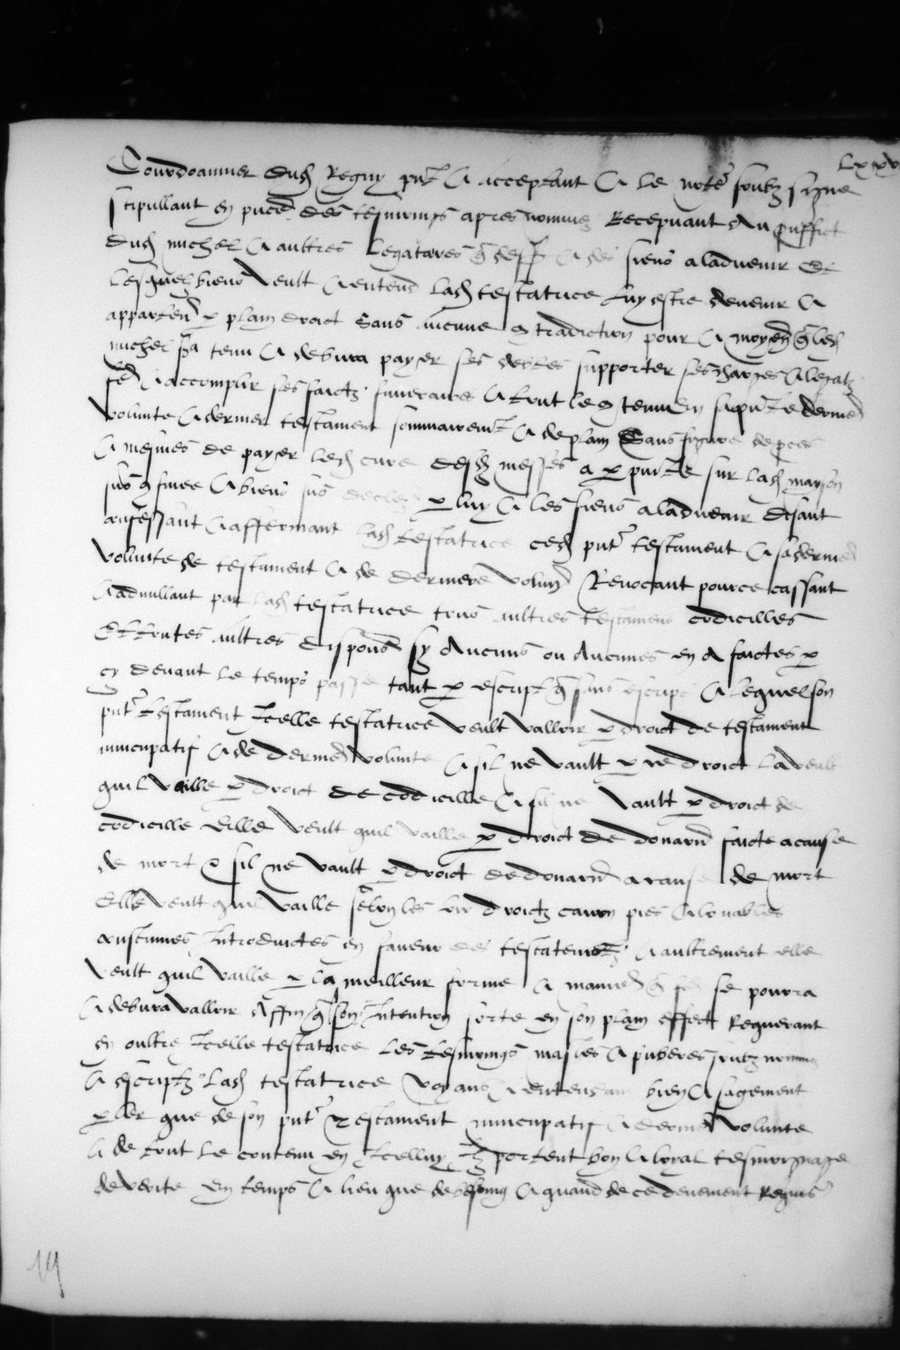 Lxxv
Courdoannier dud Reguy pnt & acceptant & le notre soubz signe
stipullant en pnce des tesmoings apres nommez Recepvant Au prouffict
dud michel & aultres Legataires & des siens a ladvenir Et
Lesquelz biens Veult & entend lad testatrice luy estre devenir &
appartenir p plain droict sans aucune contradiction pour & moyen q led
michel sera tenu & debvra payer ses debtes supporter ses charges & legatz
& accomplir ses faictz funeraire & tout le contenu en sa pnte derniere
volunte & dernier testament sommairement & de plain Sans figure de proces
& mesmes de payer led cure desd messes a ppetuite sur lad mayson
sus confinee & biens sus p luy & les siens a ladvenir disant
confessant & affermant lad testatrice ced pnt testament & sa derniere
volunte de testament & de derniere volunte Revocant pource cassant
& adnullant par lad testatrice tous aultres testamens codicilles
Et toutes aultres dispons sy Aucuns ou Aucunes en A faictes p
cy devant le temps passe tant p escript q sans escript & lequel son
pnt testament Icelle testatrice veult valloir p droict de testament
nuncupatif & de derniere volunte & sil ne vault p ce droict la veult
quil vaille p droict de codicille & sil ne vault p droict de
codicille Elle veult quil vaille p droict de donation faicte a cause
de mort & sil ne vault p droict de donation a cause de mort
Elle veult quil vaille selon les loix droictz canon & louables
coustumes Introduictes en faveur des testateurs & aultrement elle
veult quil vaille p la meilleur forme & maniere q se pourra
& debvra valloir Affin q son Intention sorte en son plain effect Requerant
en oultre Icelle testatrice Les tesmoings masles & puberes soubz nommez
& escriptz Lad testatrice voyans & entendans bien & sagement
pler que de son pnt Testament nuncupatif & derniere volunte
& de tout le contenu en Icelluy Ilz portent bon & loyal tesmoignage
de verite En temps & lieu que de besoing & quand de ce deuement Requis
19